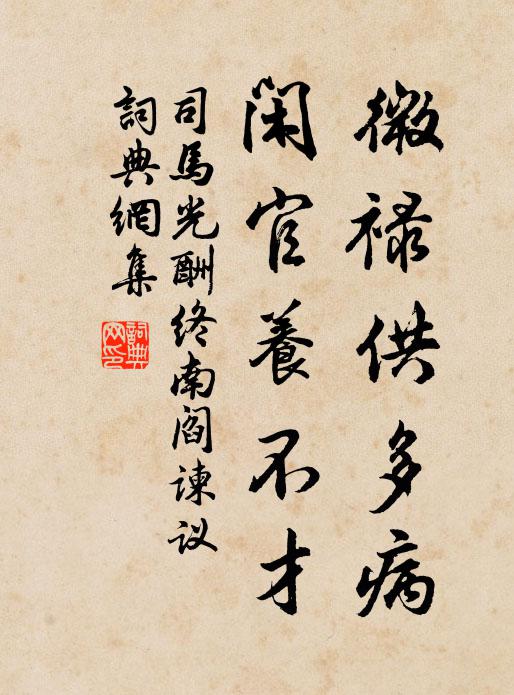 微禄供多病
闲官養不才
司馬光酬终南阎谏议
詞典網集
詞典
网印